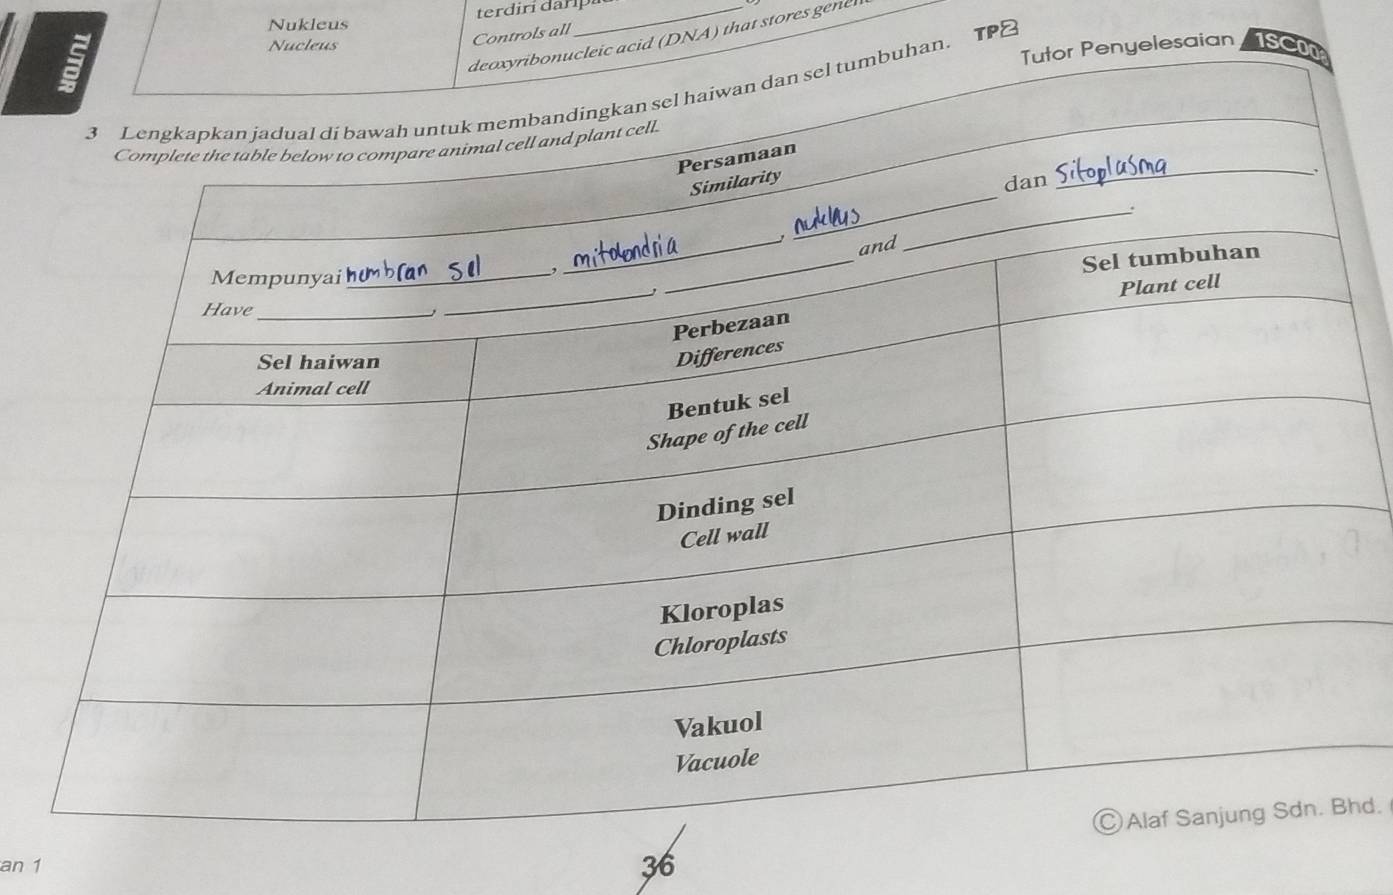 TUTOR
Nukleus
Nucleus
terdiri
Controls all
deoxyribonucleic acid (DNA) that stores
3 Lengkapkan jadual di bawah untuk membandingkan sel haiwan dan sel tumbuhan. TP2
Complete the table below to compare animal cell and plant cell.
Tutor Penyelesaian
Persamaan
Similarity
Mempunyai membran sel, mitokondria, nukleus dan Sitoplasma.
Have ____, ____, ____ and ____.
Perbezaan
Differences
Sel haiwan
Animal cell
Sel tumbuhan
Plant cell
Bentuk sel
Shape of the cell
Dinding sel
Cell wall
Kloroplas
Chloroplasts
Vakuol
Vacuole
© Alaf Sanjung Sdn. Bhd.
36
an 1